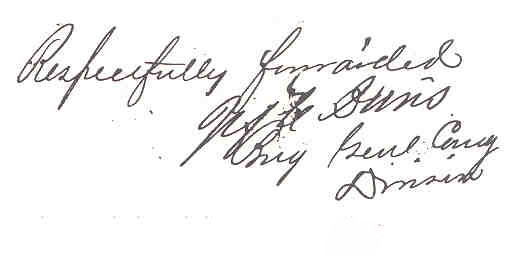 Respectfully forwarded
Brig Genl. Comg
Division